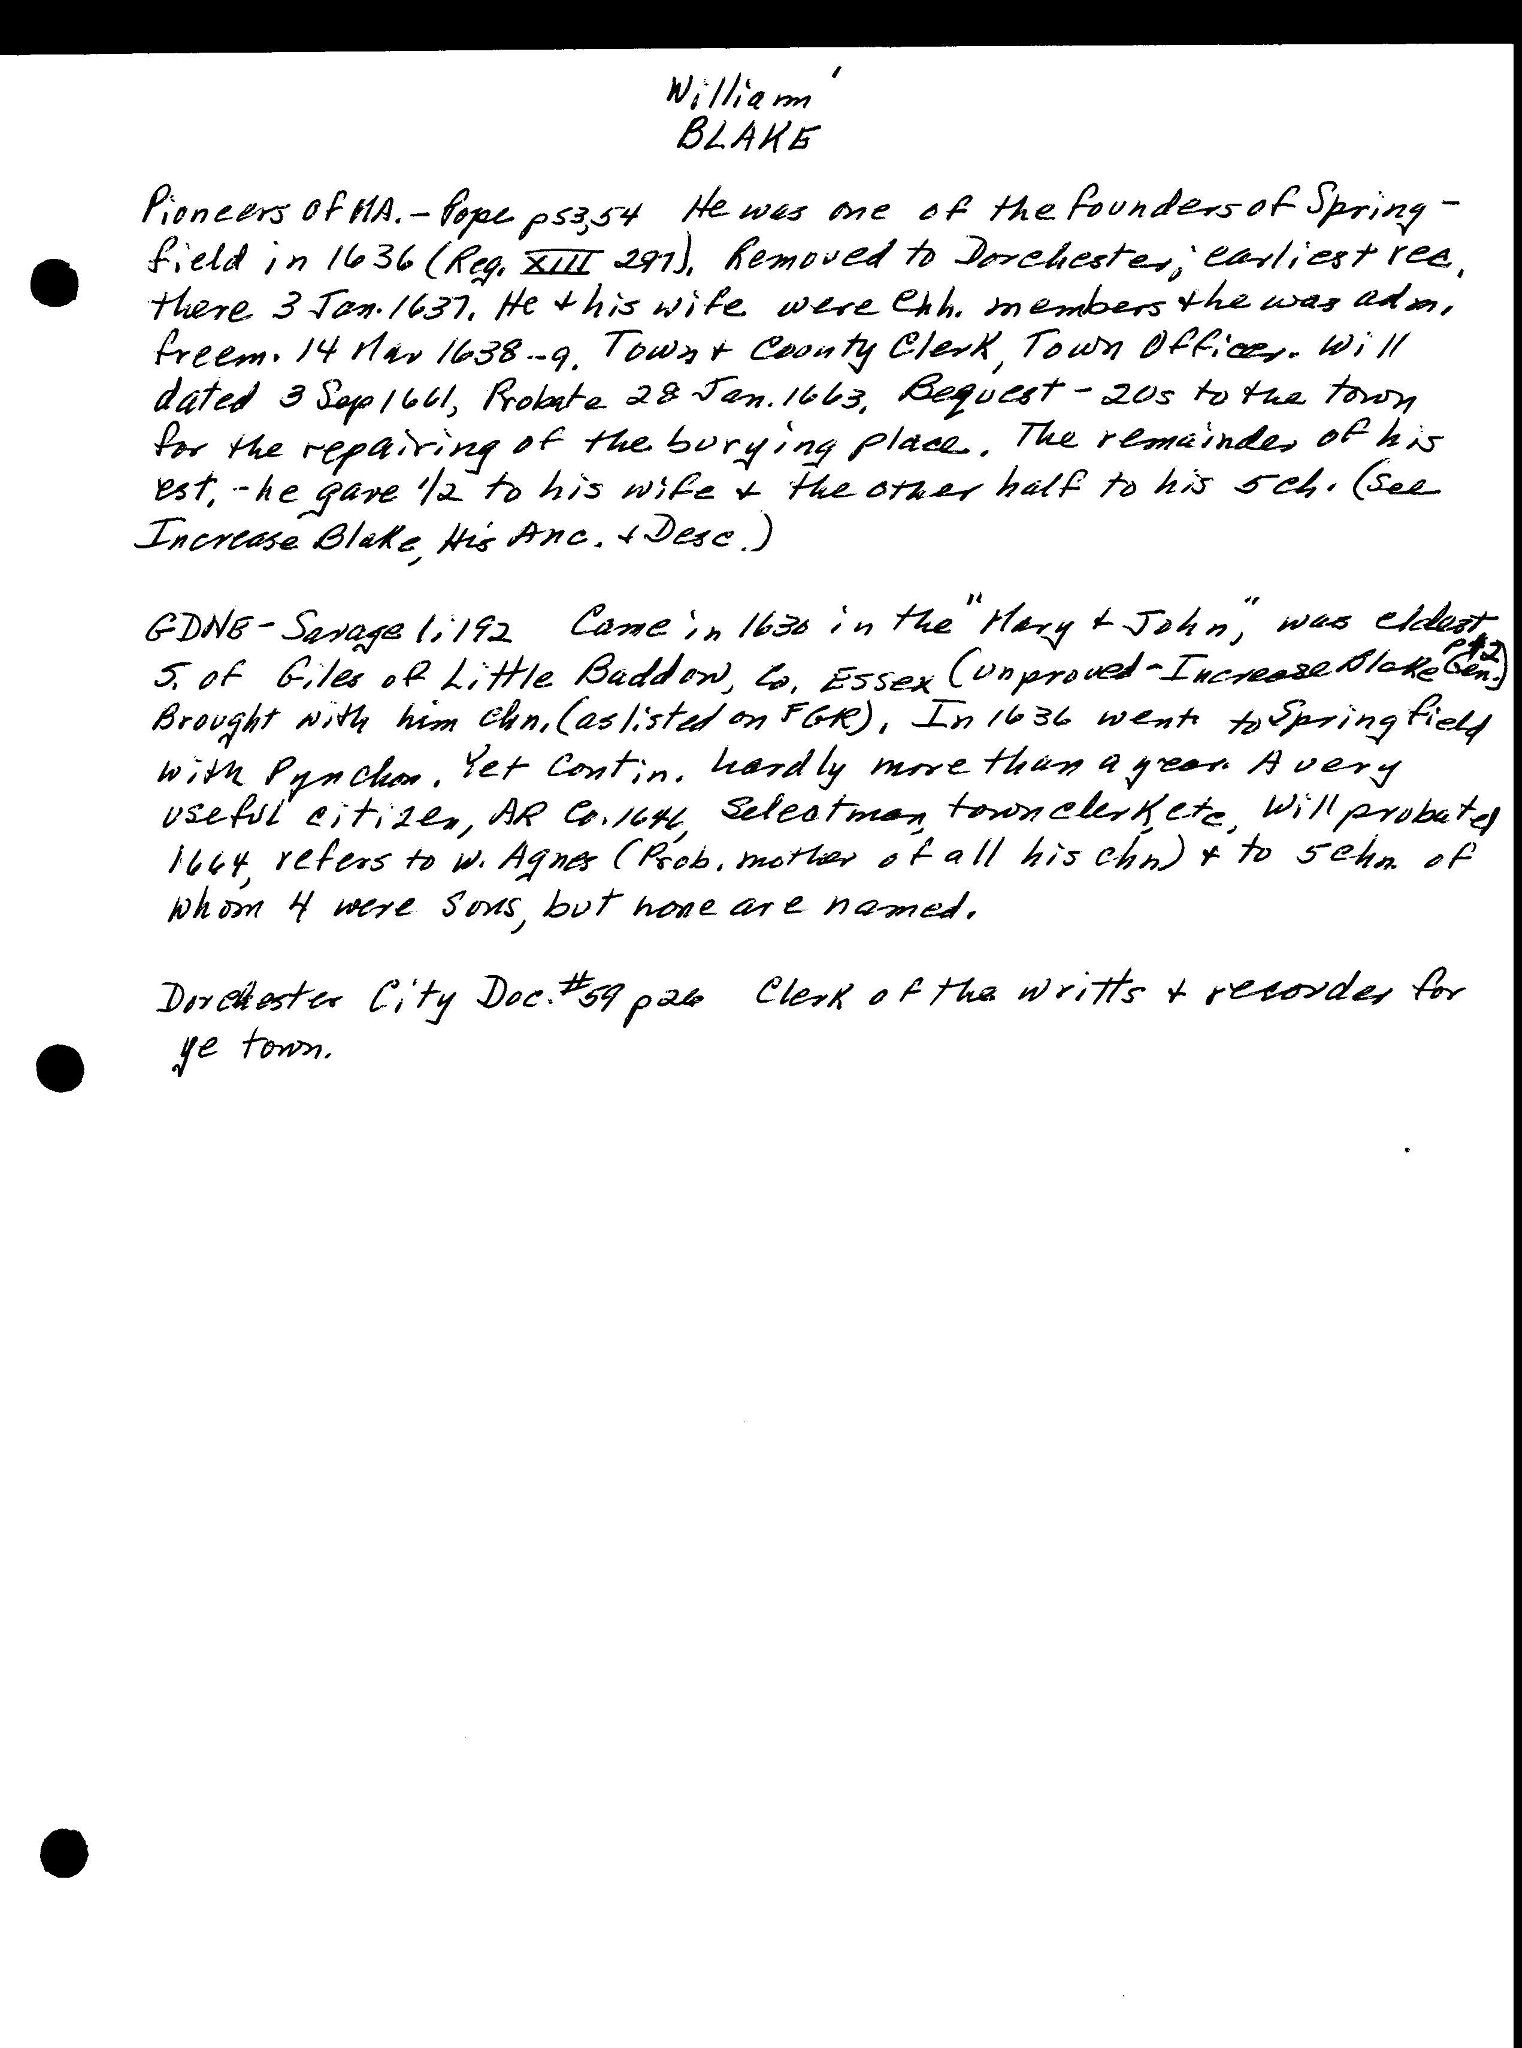 William '
BLAKE
Pioneers of MA. - Pope p53,54 He was one of the founders of Spring-
field in 1636 (Reg. XIII 297). Removed to Dorchester; earliest rec.
there 3 Jan. 1637. He + his wife were chh. members + he was adm.
freem. 14 Mar 1638--9. Town + County Clerk, Town Officer. Will
dated 3 Sep 1661, Probate 28 Jan. 1663. Bequest - 20s to the town
for the repairing of the burying place. The remainder of his
est. - he gave 1/2 to his wife + the other half to his 5 ch. (See
Increase Blake, His Anc. + Desc.)
GDNE - Savage 1:192 Came in 1630 in the "Mary + John", was eldest
S. of Giles of Little Baddow, Co. Essex (unproved - Increase Blake Gen.)
Brought with him chn. (as listed on FGR). In 1636 went to Springfield
with Pynchon. Yet contin. hardly more than a year. A very
useful citizen, AR Co. 1646, Selectman, town clerk, etc. Will probated
1664, refers to w. Agnes (Prob. mother of all his chn) + to 5 chn. of
whom 4 were sons, but none are named.
Dorchester City Doc. #59 p26 Clerk of the writts + recorder for
ye town.